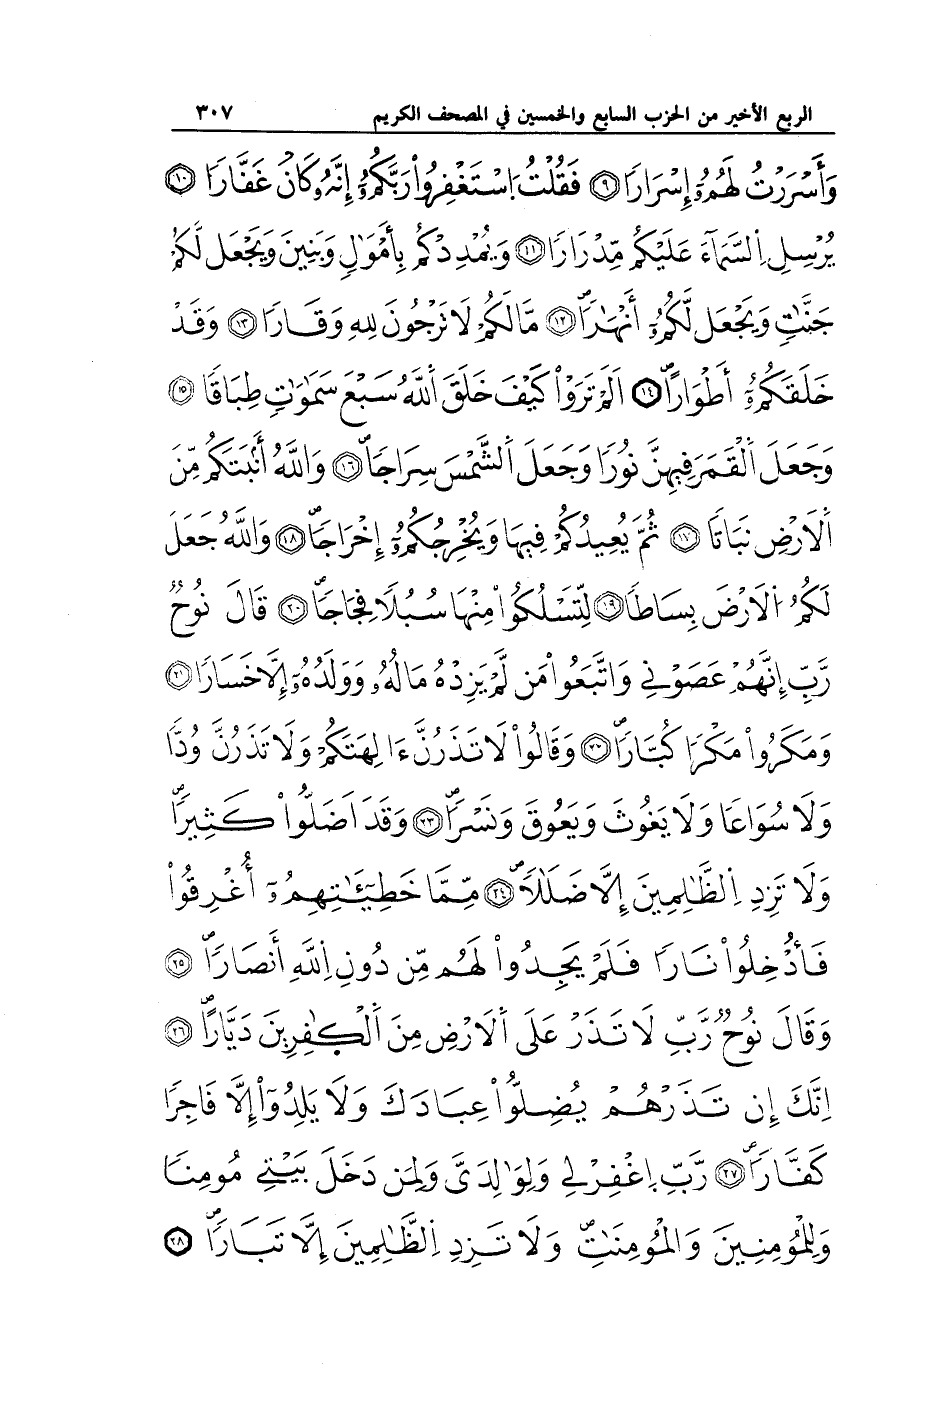 الربع الأخير من الحزب السابع والخمسين في المصحف الكريم ٣٠٧
وَأَسْرَرْتُ لَهُمُۥٓ إِسْرَارًا ٩ فَقُلْتُ اُ۪سْتَغْفِرُواْ رَبَّكُمُۥٓ إِنَّهُۥ كَانَ غَفَّارًا ١٠
يُرْسِلِ اِ۬لسَّمَآءَ عَلَيْكُم مِّدْرَارًا ١١ وَيُمْدِدْكُم بِأَمْوَٰلٍ وَبَنِينَ وَيَجْعَل لَّكُمْ
جَنَّٰتٍ وَيَجْعَل لَّكُمُۥٓ أَنْهَٰرًا ١٢ مَّا لَكُمْ لَا تَرْجُونَ لِلهِ وَقَارًا ١٣ وَقَدْ
خَلَقَكُمُۥٓ أَطْوَارًا ١٤ اَلَمْ تَرَوْاْ كَيْفَ خَلَقَ اَ۬للَّهُ سَبْعَ سَمَٰوَٰتٍ طِبَاقًا ١٥
وَجَعَلَ اَ۬لْقَمَرَ فِيهِنَّ نُورًا وَجَعَلَ اَ۬لشَّمْسَ سِرَاجًا ١٦ وَاللَّهُ أَنۢبَتَكُم مِّنَ
اَ۬لَارْضِ نَبَاتًا ١٧ ثُمَّ يُعِيدُكُمْ فِيهَا وَيُخْرِجُكُمُۥٓ إِخْرَاجًا ١٨ وَاللَّهُ جَعَلَ
لَكُمُ اُ۬لَارْضَ بِسَاطًا ١٩ لِّتَسْلُكُواْ مِنْهَا سُبُلًا فِجَاجًا ٢٠ قَالَ نُوحٌ
رَّبِّ إِنَّهُمْ عَصَوْنِے وَاتَّبَعُواْ مَن لَّمْ يَزِدْهُ مَالُهُۥ وَوَلَدُهُۥٓ إِلَّا خَسَارًا ٢١
وَمَكَرُواْ مَكْرًا كُبَّارًا ٢٢ وَقَالُواْ لَا تَذَرُنَّ ءَالِهَتَكُمْ وَلَا تَذَرُنَّ وُدًّا
وَلَا سُوَاعًا وَلَا يَغُوثَ وَيَعُوقَ وَنَسْرًا ٢٣ وَقَدَ اَضَلُّواْ كَثِيرًا
وَلَا تَزِدِ اِ۬لظَّٰلِمِينَ إِلَّا ضَلَٰلًا ٢٤ مِّمَّا خَطِيٓـَٰٔتِهِمُۥٓ أُغْرِقُواْ
فَأُدْخِلُواْ نَارًا فَلَمْ يَجِدُواْ لَهُم مِّن دُونِ اِ۬للَّهِ أَنصَارًا ٢٥
وَقَالَ نُوحٌ رَّبِّ لَا تَذَرْ عَلَى اَ۬لَارْضِ مِنَ اَ۬لْكٰ۪فِرِينَ دَيَّارًا ٢٦
اِنَّكَ إِن تَذَرْهُمْ يُضِلُّواْ عِبَادَكَ وَلَا يَلِدُوٓاْ إِلَّا فَاجِرًا
كَفَّارًا ٢٧ رَّبِّ اِ۪غْفِرْ لِے وَلِوَٰلِدَيَّ وَلِمَن دَخَلَ بَيْتِے مُومِنًا
وَلِلْمُومِنِينَ وَالْمُومِنَٰتِ وَلَا تَزِدِ اِ۬لظَّٰلِمِينَ إِلَّا تَبَارًا ٢٨